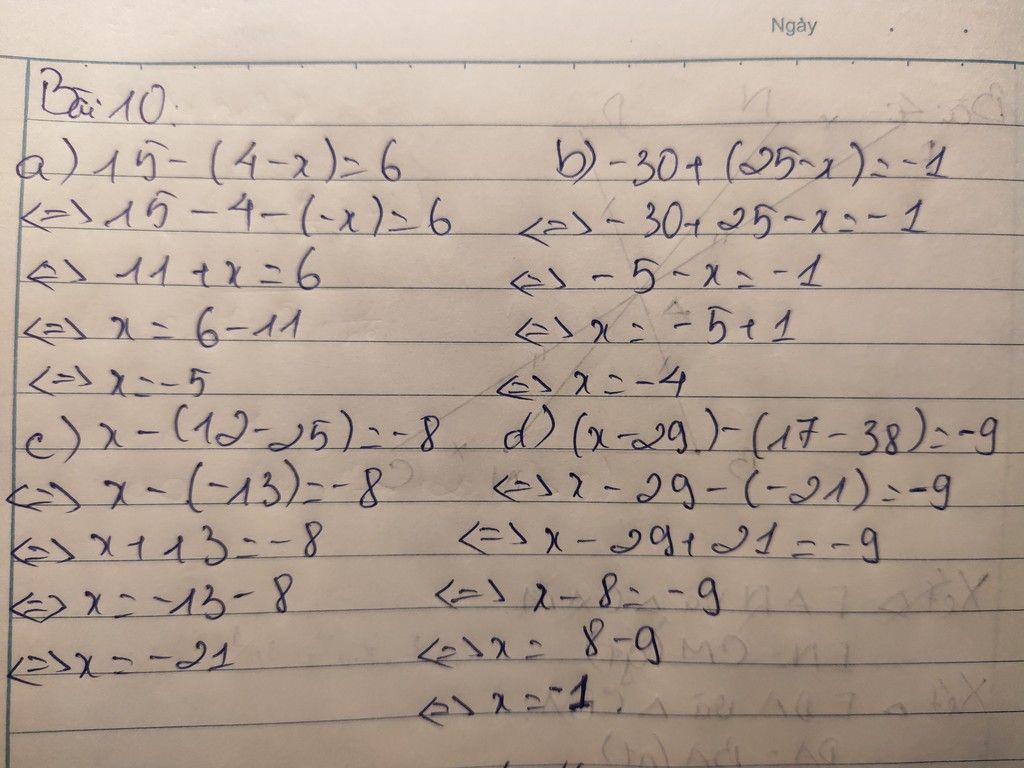 Ngày
Bài 10.
a) 15 - (4 - x) = 6
<=> 15 - 4 - (-x) = 6
<=> 11 + x = 6
<=> x = 6 - 11
<=> x = -5
b) -30 + (25 - x) = -1
<=> -30 + 25 - x = -1
<=> -5 - x = -1
<=> x = -5 + 1
<=> x = -4
c) x - (12 - 25) = -8
<=> x - (-13) = -8
<=> x + 13 = -8
<=> x = -13 - 8
<=> x = -21
d) (x - 29) - (17 - 38) = -9
<=> x - 29 - (-21) = -9
<=> x - 29 + 21 = -9
<=> x - 8 = -9
<=> x = 8 - 9
<=> x = -1.